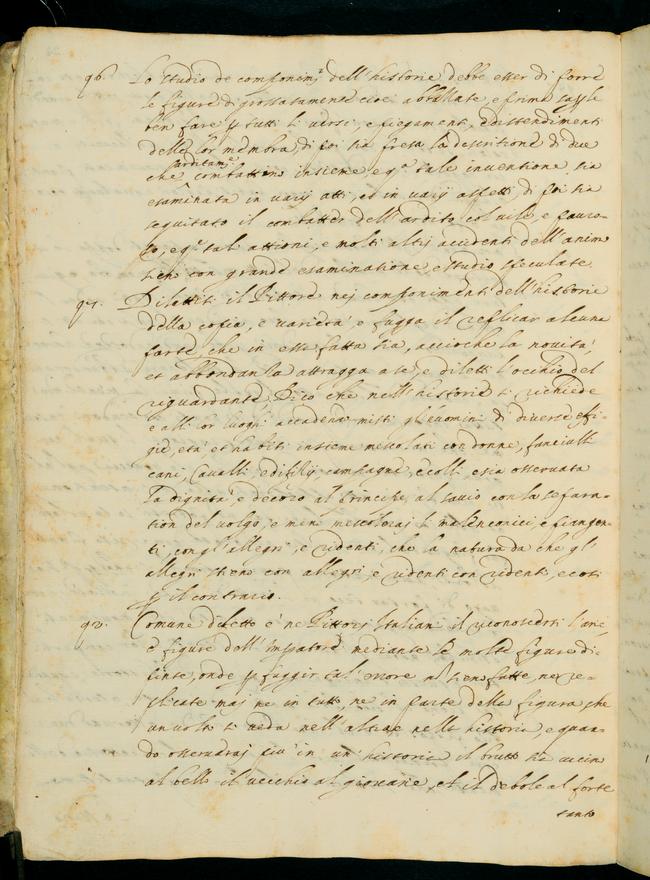 96. Lo studio de componim.ti dell'historie debbe esser di porre
le figure digrossatamente cioè abbozzate, e prima sapperle
ben fare p tutti li versi, e piegamenti, e distendimenti
delle lor membra, di poi sia presa la descritione di due
arditam.te
che combattino insieme, e q.a tale inventione sia
esaminata in varij atti, et in varij aspetti, di poi sia
seguitato il combatter dell'ardito col vile, e pauro-
so, e q.e tali attioni, e molti altrj accidenti dell'animo
sieno con grande esaminatione, e studio speculate
97. Dilettisi il Pittore nej componimenti dell'historie
della copia, e varietà, e fugga il replicar alcuna
parte, che in esse fatta sia, accioche la novità,
et abbondanza attragga a se, e diletti l'occhio del
riguardante, Dico che nell'historie si richiede
e alli lor luoghi accadendo misti gl'huomini di diverse effi-
gie, età, et habiti insieme mescolati con donne, fanciulli
cani, Cavalli, edifitij, campagne, e colli, e sia osservata
la dignità, e decoro al Principe, al savio con la separa-
tion del volgo, e meno mescolerai li malenconici, e piangen-
ti, con gl'allegri, e ridenti, che la natura da che gl'
allegri stieno con allegri, e ridenti con ridenti, e così
p il contrario.
98. Comune difetto è ne Pittorj Italiani il riconoscersi l'aria
e figure dell'Imperatore mediante le molte figure di-
pinte, onde p fuggir tal'errore non sieno fatte, ne re-
plicate maj ne in tutto, ne in parte delle figura che
un volto si veda nell'altro nelle historie, e quan-
do osserveraj più in un'historie il brutto sia vicino
al bello il vecchio al giovane, et il debole al forte
tanto